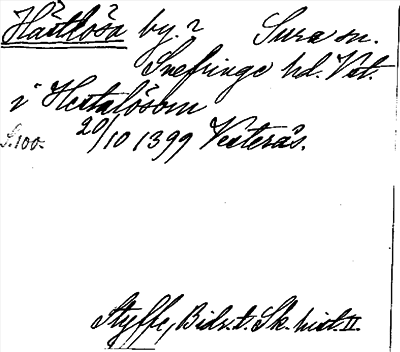 Hästlösa by.? Sura sn.
Snefringe hd. Vst.
i Hestalösom
S.100. 20/10 1399 Vesterås.
Styffe, Bidr. t. Sk. hist. II.